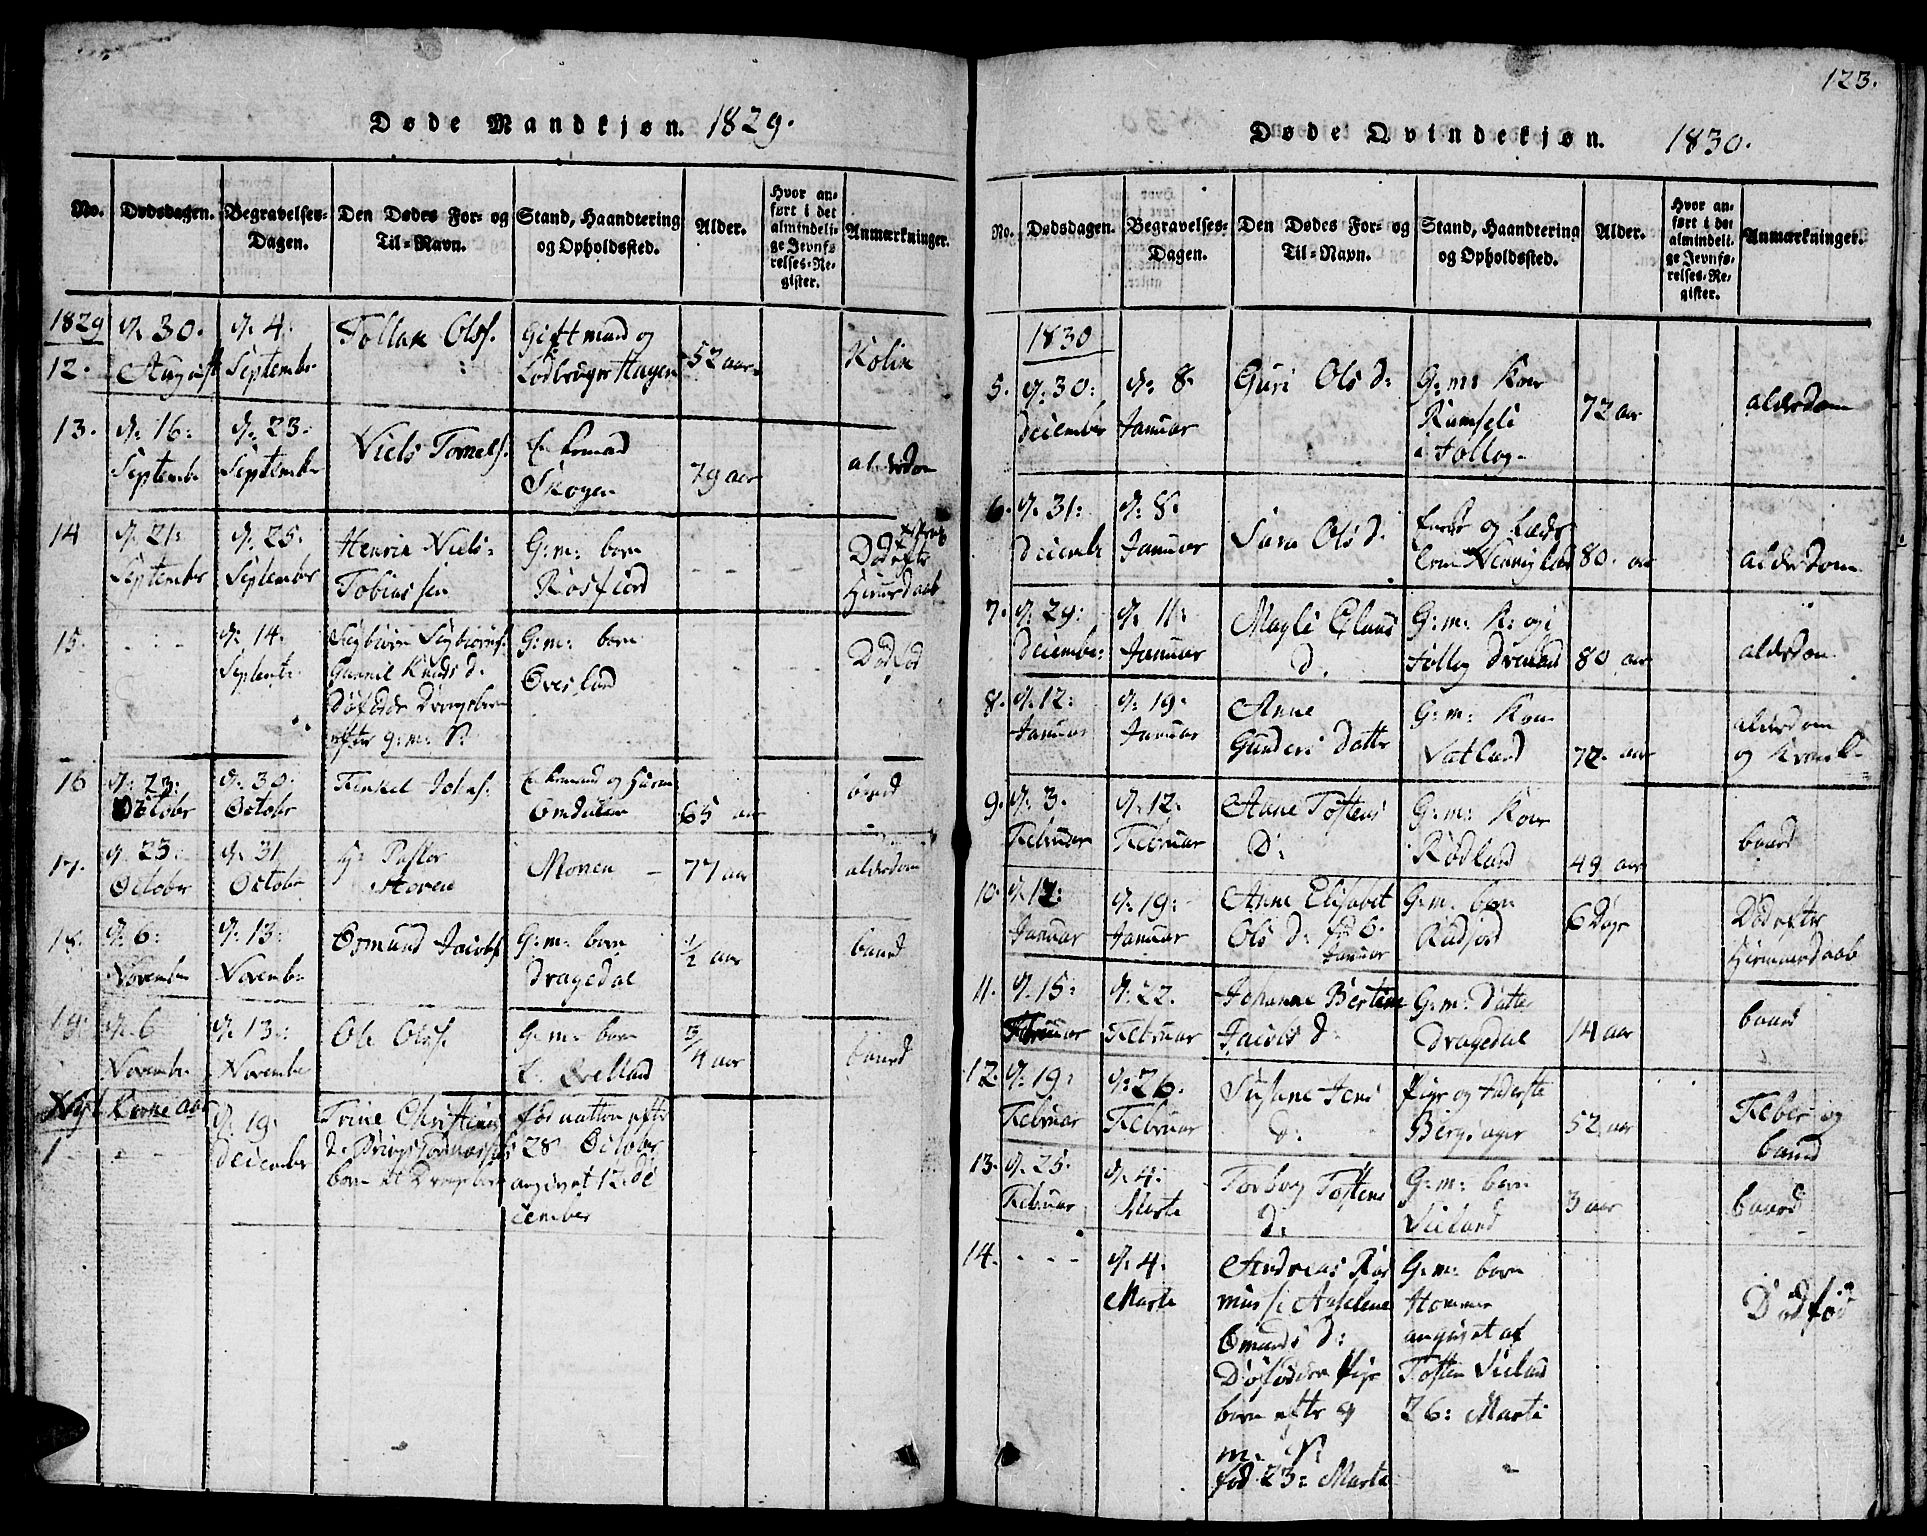 Døde Mandkjøn. 1829.
No.
Dødsdagen.
Begravelses-
Dagen.
Den Dødes For- og
Til-Navn.
Stand, Haandtering
og Opholdssted.
Alder.
Hvor an-
ført i det
almindeli-
ge Jevnfø-
relses-Re-
gister.
Anmærkninger.
1829
12.
d. 30.
August
d. 4.
September
Tollak Olss.
Giftmand og
Lodbruger Hagen
52 aar
Kolik
13.
d. 16:
Septembr
d. 23:
September
Niels Tomess.
Enkemand
Skogen
79 aar
alderdom
14
d. 21:
September
d. 25.
September
Henrik Niels-
Tobiassen
G: m: barn
Rosfiord
- -
Død efter
Hiemmedaab
15.
- - -
d. 14.
Septembr
Gunnil Knuds d.
efter g: m: S:
G: m: barn
Øvesland
Dødfød
16
d. 23:
Octobr
d. 30:
Octobr
Tenkel Johns:
Enkemand og
Omdalen
65 aar
17.
d. 25.
October
d. 31
Octobr
Hr Pastor
Hoven
Monen
77 aar
alderdom
18.
d. 6:
Novembr
d. 13:
Novembr
Osmund Jacobs.
G: m: barn
Dragedal
1/2 aar
baand
19.
d. 6
Novembr
d. 13:
Novembr
Ole Olss.
G: m: barn
Qvelland
3/4 aar
baand
Nyt Kirke aar
1
- - -
d. 19.
December
Trine Christines
fød natten efter
28 October
angivet 12 de
cember
123.
Døde Qvindekjøn. 1830.
No.
Dødsdagen.
Begravelses-
Dagen.
Den Dødes For- og
Til-Navn.
Stand, Haandtering
og Opholdssted.
Alder.
Hvor an-
ført i det
almindeli-
ge Jevnfø-
relses-Re-
gister.
Anmærkninger.
1830
5.
d: 30:
December
d: 8.
Januar
Guri Ols d:
G: m: Kone
Ramseli
i Follog
72 aar
alderdom
6.
d. 31:
Decembr
d. 8.
Januar
Sara Ols d.
Enke og Læds
80. aar
alderdom
7.
d. 29:
December
d. 11:
Januar
Magli Eland
D.
G: m: K: og i
Follog
80 aar
alderdom
8.
d. 12:
Januar
d. 19.
Januar
Anne
Gunders Datter
G: m: Kone
Vatland
77. aar
alderdom
og
9.
d. 3.
Februar
d. 12.
Februar
Anne Tostens
D:
G: m: Kone
Rødland
49 aar
baand
10.
d. 12:
Januar
d. 19:
Januar
Anne Elisabet
Ols d: fød 6.
Januar
G: m: barn
Rødfjord
6 Dage
Død efter
Hiemmedaab
11.
d. 15:
Februar
d. 22.
Februar
Johanne Bertine
Jacobs d:
G: m: Datter
Dragedal
14 aar
baand
12.
d. 19:
Februar
d. 26.
Februar
Susane Jens
D:
Pige og Inderste
Bergsager
52 aar
Feber og
baand
13.
d. 25.
Februar
d. 4.
Marts
Torborg Tostens
D:
G: m: barn
Sieland
3 aar
baand
14.
- - -
d. 4.
Marts
Andreas Ras
mus s: Anselene
Omunds D:
Døsfødde Pige
barn efter g
m: S:
fød 23: Marts
G: m: barn
Homme
angivet af
Tosten Sieland
26: Marts
Dødfød